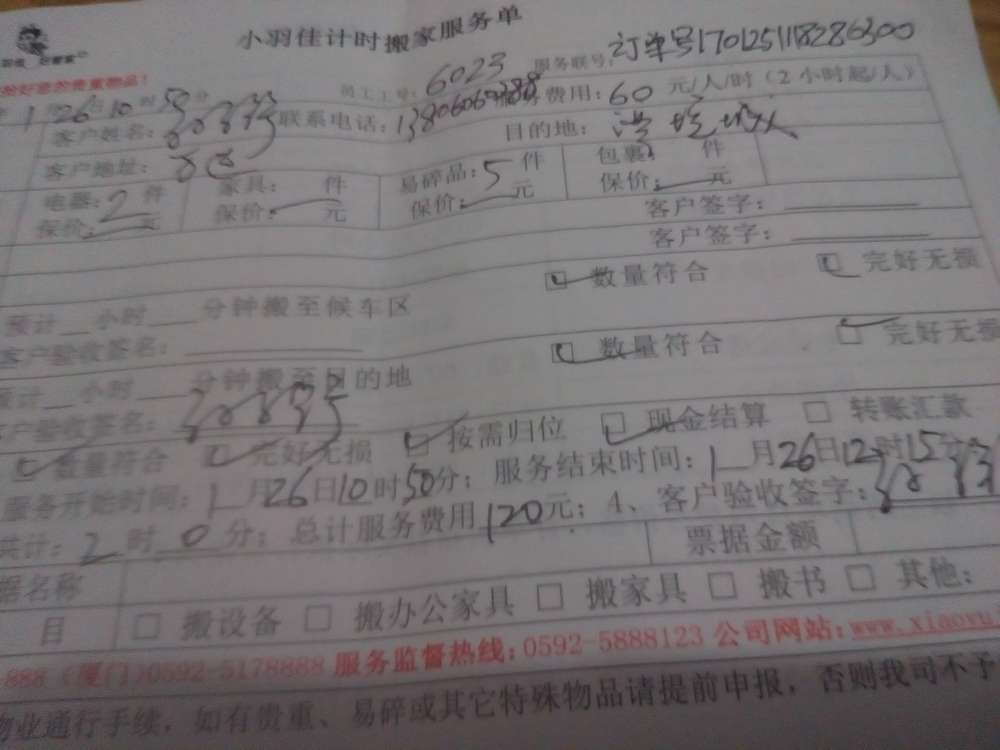 小羽佳计时搬家服务单
订单号170125118286300
的好意的贵重物品!
员工工号:6023 服务联号:
1 26日10时50分
客户姓名: 联系电话: 服务费用:60元/人/时(2小时起/人)
客户地址: 目的地:
电器:2件 家具: 件 易碎品:5件 包裹: 件
保价: 元 保价: 元 保价: 元 保价: 元
客户签字:
客户签字:
预计 小时 分钟搬至候车区 数量符合 完好无损
客户验收签名:
预计 小时 分钟搬至目的地 数量符合 完好无损
客户验收签名:
数量符合 完好无损 按需归位 现金结算 转账汇款
服务开始时间:1月26日10时50分;服务结束时间:1月26日12时15分
共计:2时0分;总计服务费用120元;4、客户验收签字:
据名称 票据金额
目 搬设备 搬办公家具 搬家具 搬书 其他:
-888 (厦门)0592-5178888 服务监督热线:0592-5888123 公司网站:www.xiaoyu
物业通行手续,如有贵重、易碎或其它特殊物品请提前申报,否则我司不予